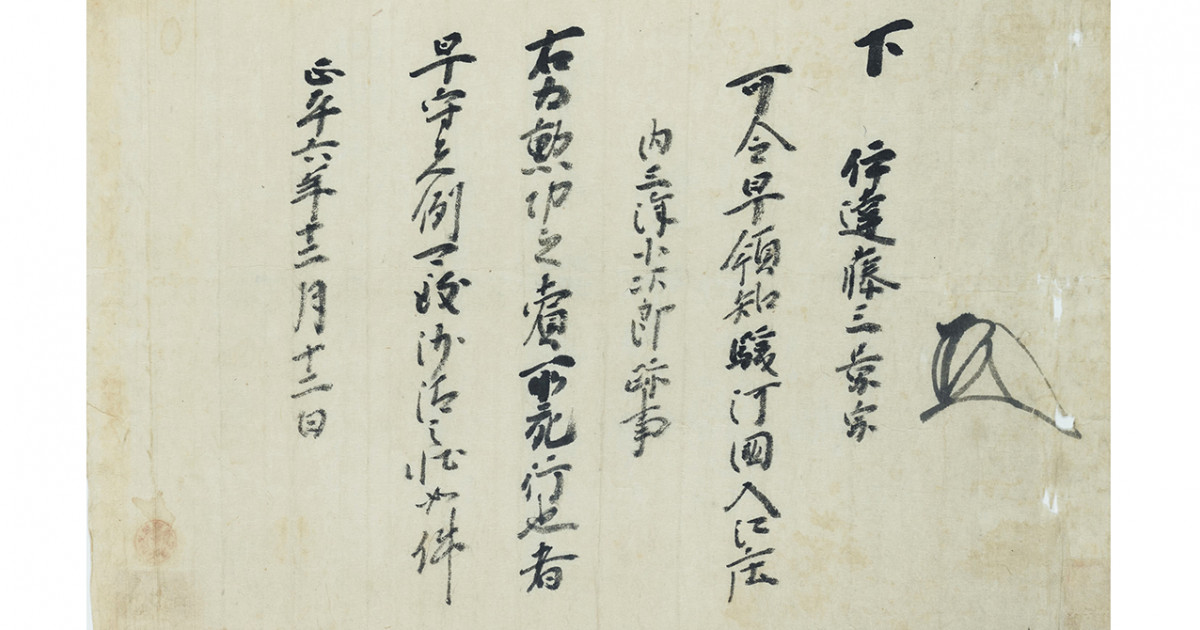 下　伊達藤三景宗
可令早領知駿河國入江庄
内三澤小次郎跡事
右為勲功之賞所宛行也者
早守先例可致沙汰之状如件
正平六年十二月十二日